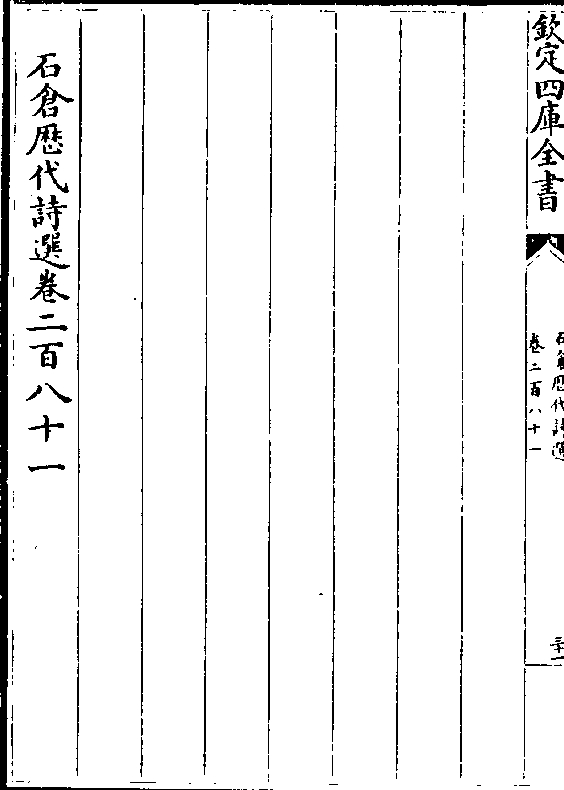 欽定四庫全書
石倉歴代詩選
卷二百八十一
三十一
石倉歴代詩選卷二百八十一